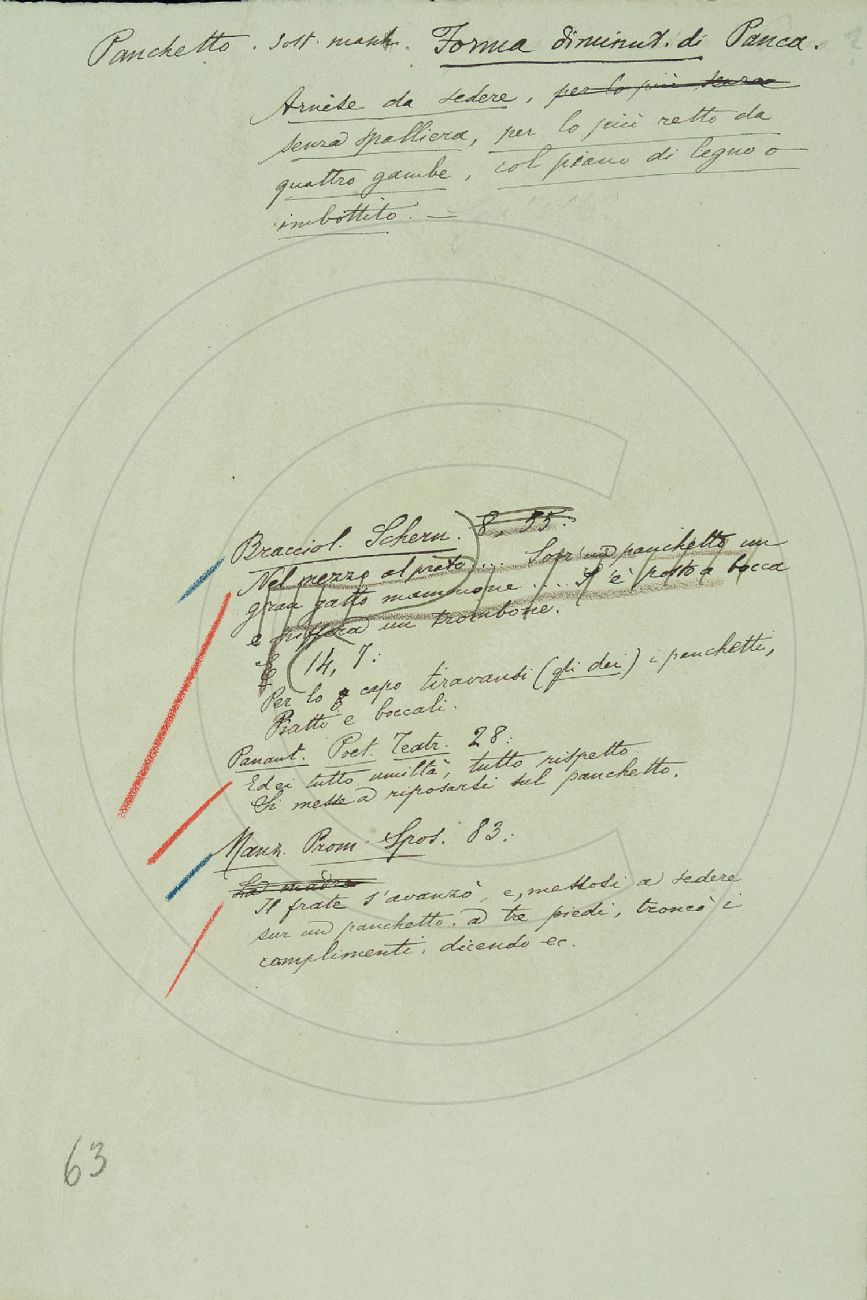 Panchetto. Sost. masch. Forma diminut. di Panca.
Arnese da sedere, per lo più senza
senza spalliera, per lo più retto da
quattro gambe, col piano di legno o
imbottito. —
Bracciol. Schern. 8, 55:
Nel mezzo al prato... Sopr'un panchetto un
gran gatto mammone... S'è posto a bocca
e un trombone.
E 14, 7:
Per lo capo tiravansi (gli dei) i panchetti,
Piatti e boccali.
Panant. Poet. Teatr. 28:
Ed ei tutto umiltà, tutto rispetto
Si messe a riposarsi sul panchetto.
Manz. Prom. Spos. 83:
La madre
Il frate s'avanzò, e, messosi a sedere
sur un panchetto a tre piedi, troncò i
complimenti, dicendo ec.
63